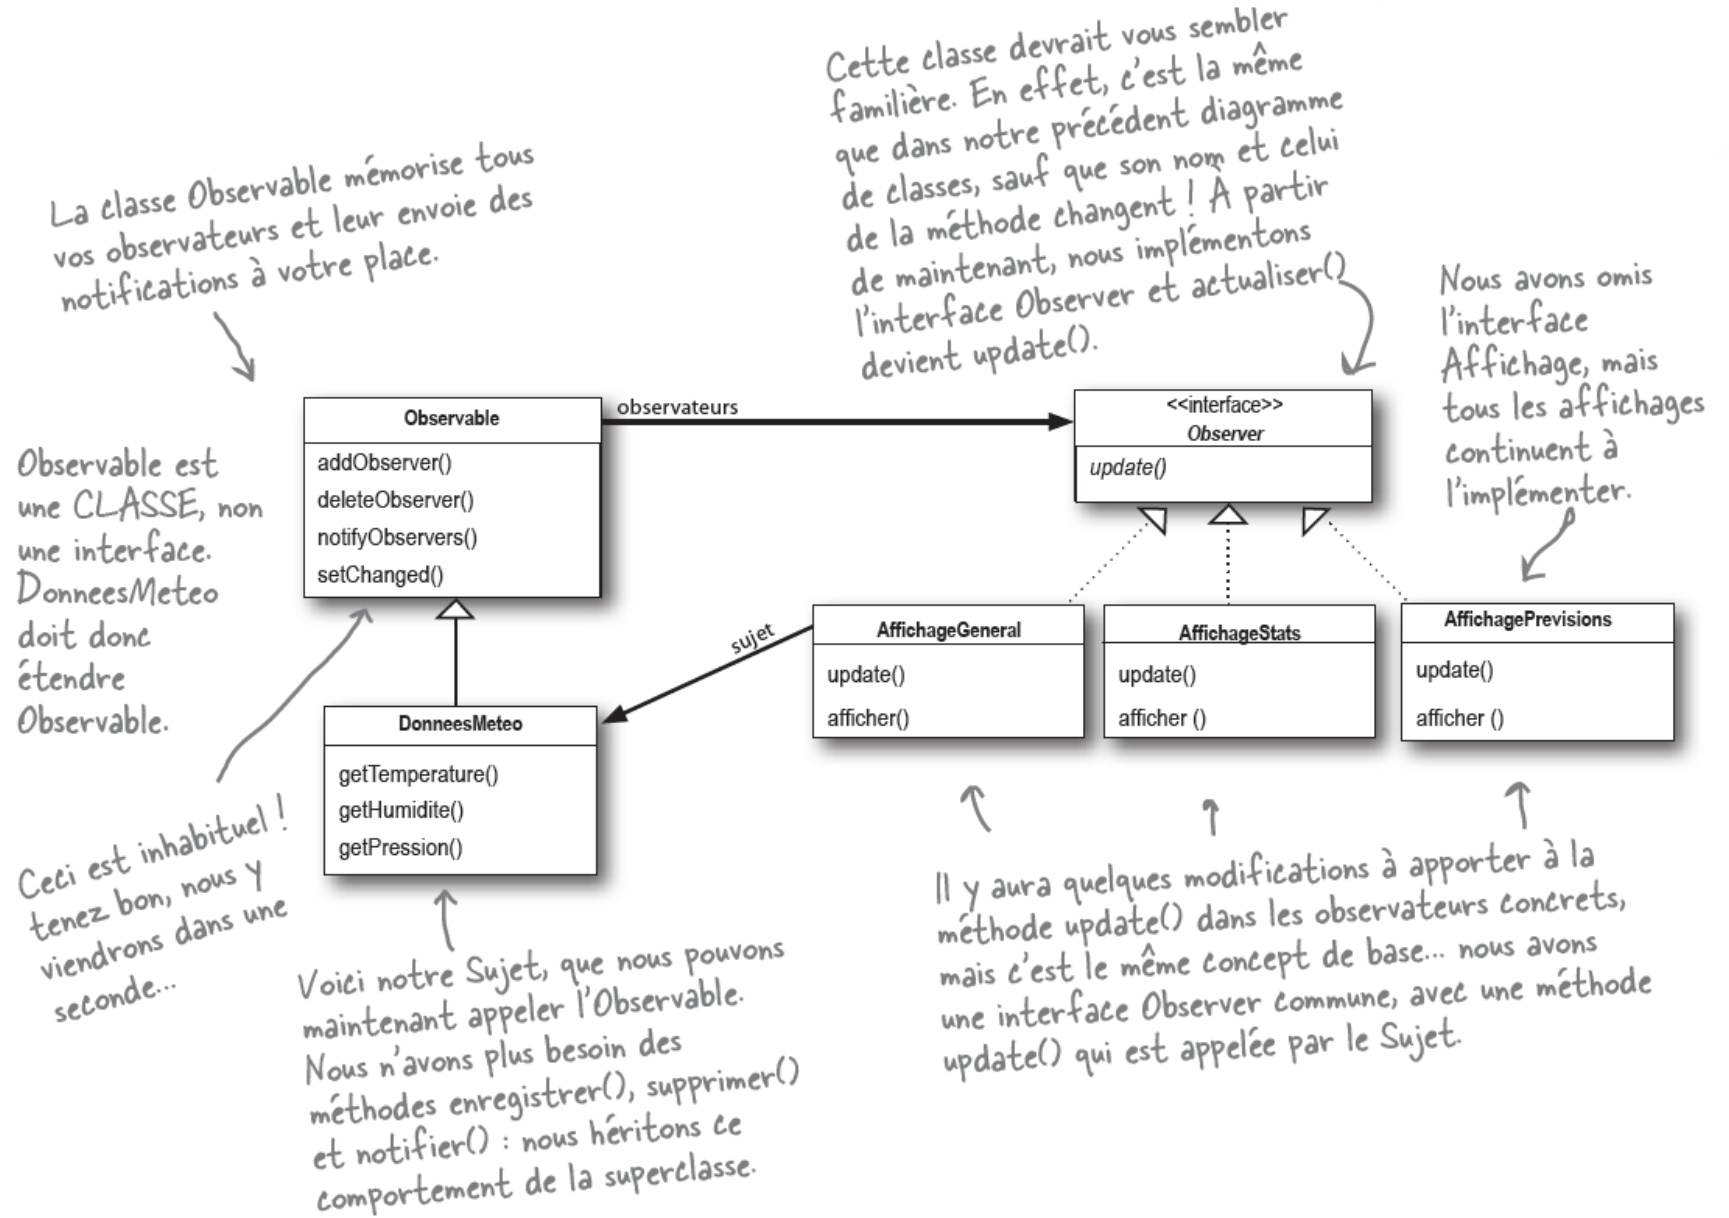 La classe Observable mémorise tous
vos observateurs et leur envoie des
notifications à votre place.
Cette classe devrait vous sembler
familière. En effet, c'est la même
que dans notre précédent diagramme
de classes, sauf que son nom et celui
de la méthode changent ! À partir
de maintenant, nous implémentons
l'interface Observer et actualiser()
devient update().
Nous avons omis
l'interface
Affichage, mais
tous les affichages
continuent à
l'implémenter.
Observable est
une CLASSE, non
une interface.
DonneesMeteo
doit donc
étendre
Observable.
Observable
addObserver()
deleteObserver()
notifyObservers()
setChanged()
observateurs
<<interface>>
Observer
update()
sujet
DonneesMeteo
getTemperature()
getHumidite()
getPression()
AffichageGeneral
update()
afficher()
AffichageStats
update()
afficher ()
AffichagePrevisions
update()
afficher ()
Ceci est inhabituel !
tenez bon, nous y
viendrons dans une
seconde...
Voici notre Sujet, que nous pouvons
maintenant appeler l'Observable.
Nous n'avons plus besoin des
méthodes enregistrer(), supprimer()
et notifier() : nous héritons ce
comportement de la superclasse.
Il y aura quelques modifications à apporter à la
méthode update() dans les observateurs concrets,
mais c'est le même concept de base... nous avons
une interface Observer commune, avec une méthode
update() qui est appelée par le Sujet.